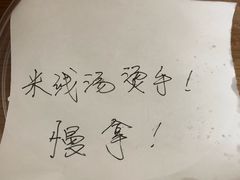 米线汤烫手！
慢拿！